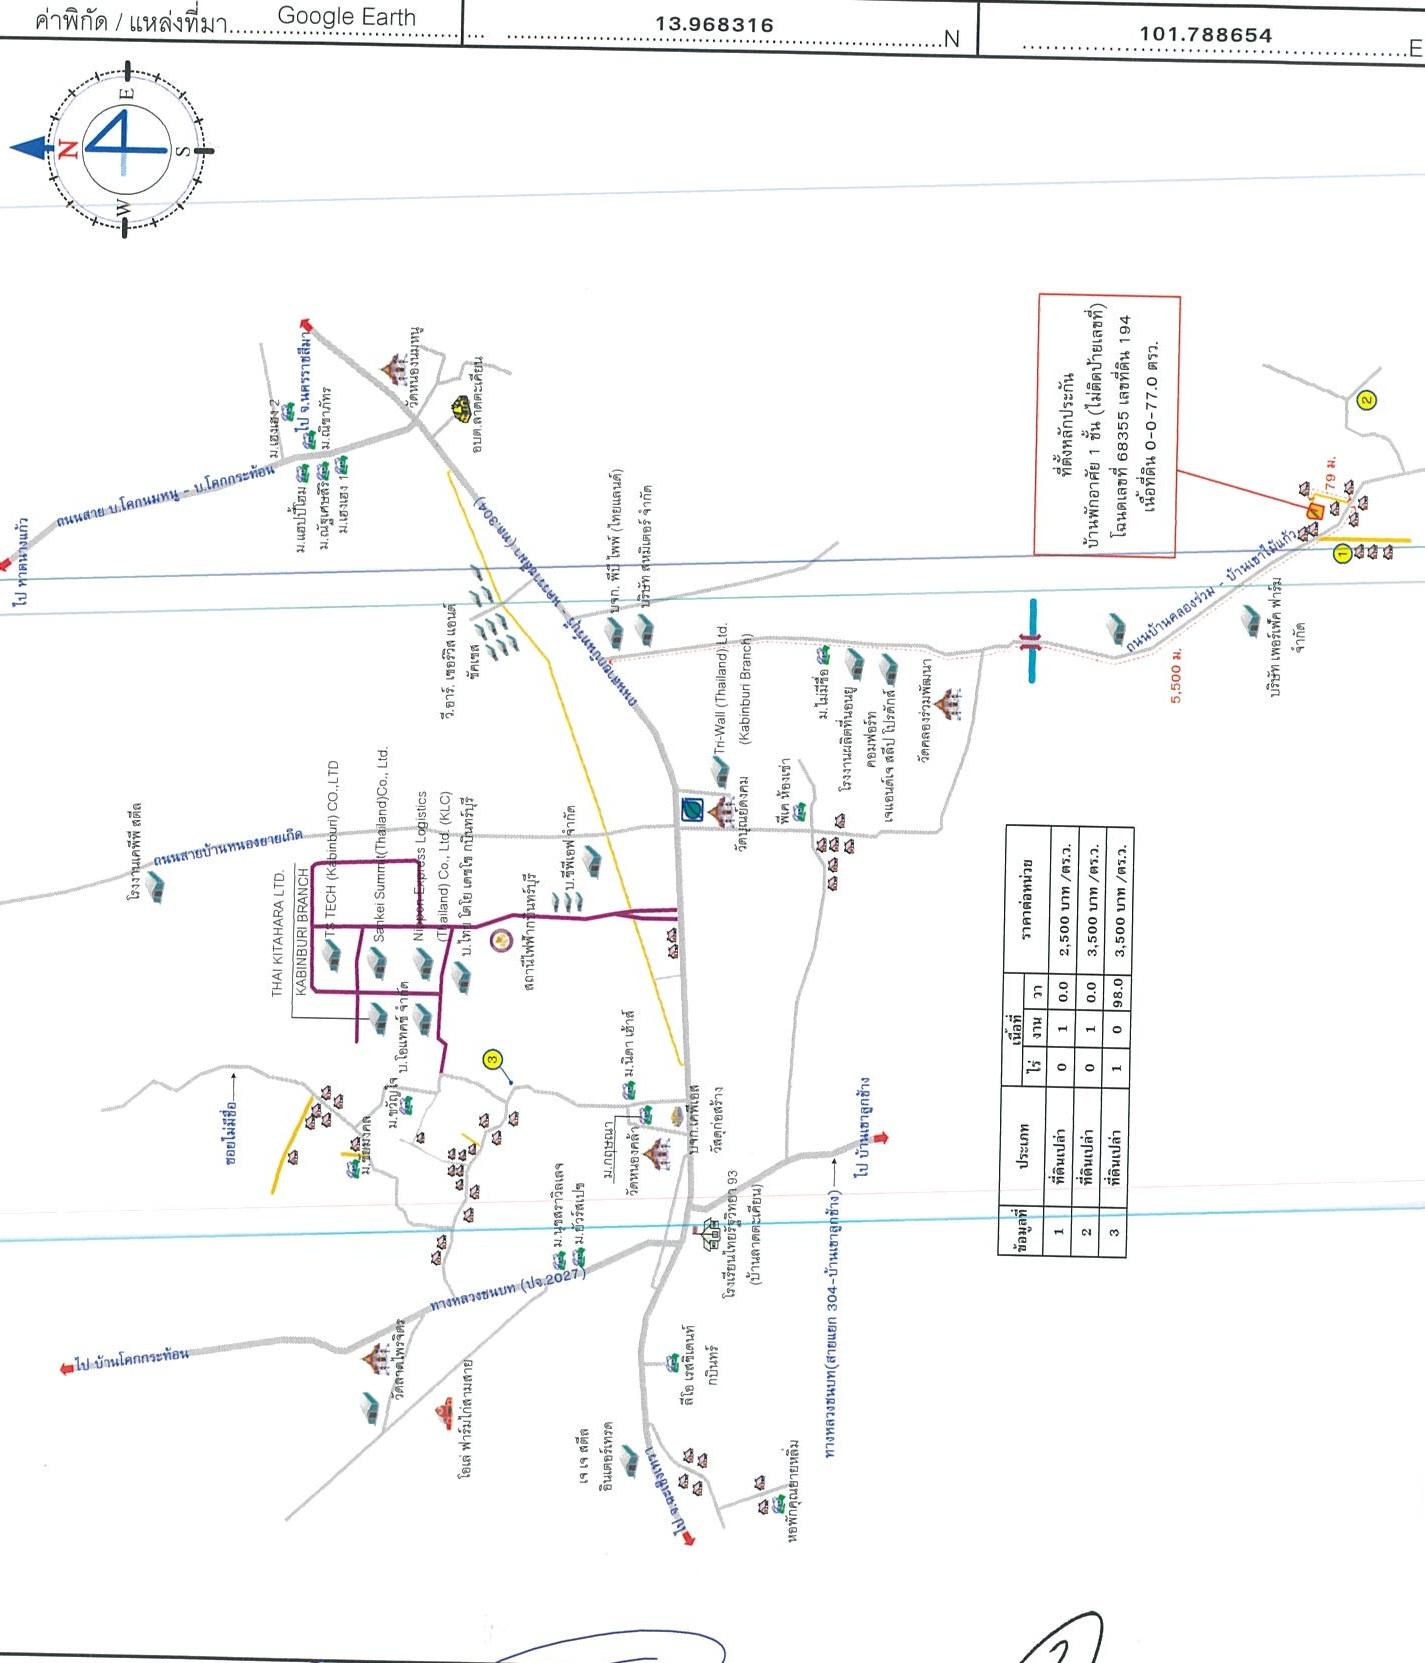 ค่าพิกัด / แหล่งที่มา.....Google Earth..... 13.968316 .....N 101.788654 .....E
N
E
S
W
ที่ตั้งหลักประกัน
บ้านพักอาศัย 1 ชั้น (ไม่ติดป้ายเลขที่)
โฉนดเลขที่ 68355 เลขที่ดิน 194
เนื้อที่ดิน 0-0-77.0 ตรว.
ไป จ.นครราชสีมา
วัดหนองนมหนู
อบต.ลาดตะเคียน
ม.เฮงเฮง 2
ม.ณิชาภัทร
ม.แฮปปี้โฮม
ม.ณัฐเศษสิริ
ม.เฮงเฮง 1
ถนนสาย บ.โคกนมหนู - บ.โคกกระท้อน
ไป หาดนางแก้ว
วี.อาร์. เซอร์วิส แอนด์
ซัคเซส
บจก. พีบี ไพพ์ (ไทยแลนด์)
บริษัท สหมิตเตอร์ จำกัด
Tri-Wall (Thailand) Ltd.
(Kabinburi Branch)
ม.ไม่มีชื่อ
โรงงานผลิตที่นอนยู
คอมฟอร์ท
เจแอนด์เจ สลีป โปรดักส์
วัดคลองร่วมพัฒนา
5,500 ม.
79 ม.
ถนนบ้านคลองร่วม - บ้านเขาไม้แก้ว
บริษัท เพอร์เฟ็ค ฟาร์ม
จำกัด
1
2
3
โรงงานเคพีพี สตีล
ถนนสายบ้านหนองยายเกิด
THAI KITAHARA LTD.
KABINBURI BRANCH
TS TECH (Kabinburi) CO.,LTD
Sankei Summit(Thailand)Co., Ltd.
Nippon Express Logistics
(Thailand) Co., Ltd. (KLC)
บ.ไทย โตโย เดซโซ กบินทร์บุรี
บ.โอแทคซ์ จำกัด
สถานีไฟฟ้ากบินทร์บุรี
บ.ซีพีเอฟ จำกัด
พีเค ห้องเช่า
ซอยไม่มีชื่อ
ม.ชัยมงคล
ม.ขวัญใจ
ม.นิดา เฮ้าส์
ม.กฤษณา
วัดหนองคล้า
บจก.เคพีเอส
วัสดุก่อสร้าง
ไป บ้านเขาลูกช้าง
ทางหลวงชนบท(สายแยก 304-บ้านเขาลูกช้าง)
โรงเรียนไทยรัฐวิทยา 93
(บ้านลาดตะเคียน)
ม.นุชสราวิลเลจ
ทางหลวงชนบท (ปจ.2027)
ไป บ้านโคกกระท้อน
วัดลาดไพรจิตร
โอเล่ ฟาร์มไก่สามสาย
ลีโอ เรสซิเดนท์
กบินทร์
เจ เจ สตีล
อินเตอร์เทรด
ไป จ.ฉะเชิงเทรา
หอพักคุณยายหลิ่ม
ข้อมูลที่ ประเภท เนื้อที่ ราคาต่อหน่วย
ไร่ งาน วา
1 ที่ดินเปล่า 0 1 0.0 2,500 บาท /ตร.ว.
2 ที่ดินเปล่า 0 1 0.0 3,500 บาท /ตร.ว.
3 ที่ดินเปล่า 1 0 98.0 3,500 บาท /ตร.ว.